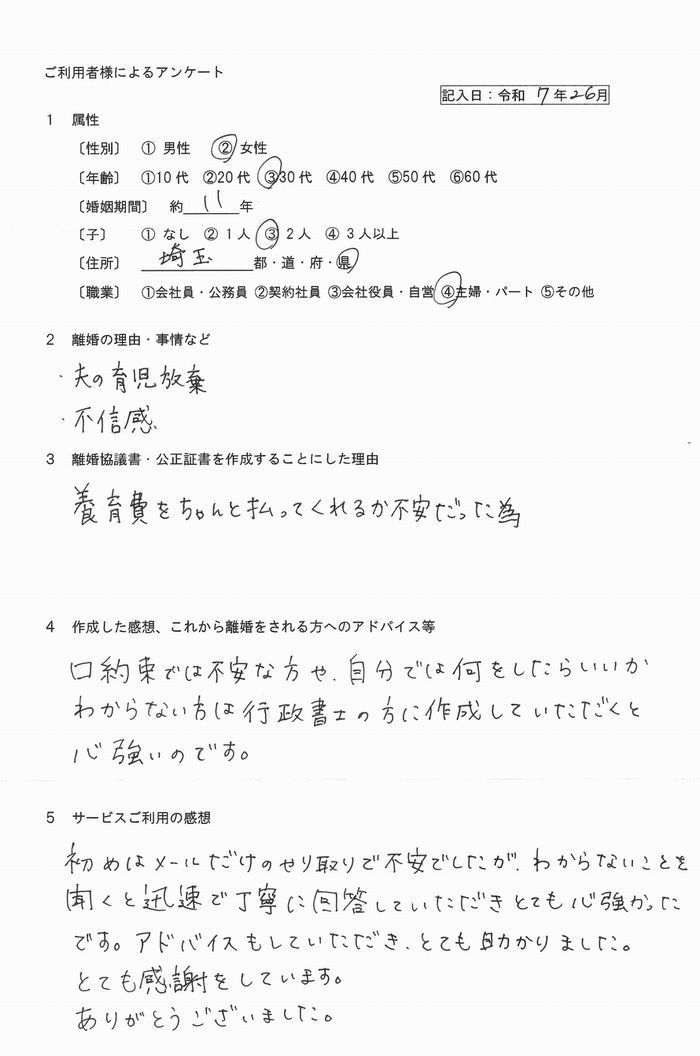 ご利用者様によるアンケート
記入日：令和 7年26月
1 属性
〔性別〕 ① 男性 ② 女性
〔年齢〕 ①10代 ②20代 ③30代 ④40代 ⑤50代 ⑥60代
〔婚姻期間〕 約 11 年
〔子〕 ① なし ② 1人 ③ 2人 ④ 3人以上
〔住所〕 埼玉 都・道・府・県
〔職業〕 ①会社員・公務員 ②契約社員 ③会社役員・自営 ④主婦・パート ⑤その他
2 離婚の理由・事情など
・夫の育児放棄
・不信感
3 離婚協議書・公正証書を作成することにした理由
養育費をちゃんと払ってくれるか不安だった為
4 作成した感想、これから離婚をされる方へのアドバイス等
口約束では不安な方や、自分では何をしたらいいか
わからない方は行政書士の方に作成していただくと
心強いのです。
5 サービスご利用の感想
初めはメールだけのやり取りで不安でしたが、わからないことを
聞くと迅速で丁寧に回答していただきとても心強かった
です。アドバイスもしていただき、とても助かりました。
とても感謝をしています。
ありがとうございました。